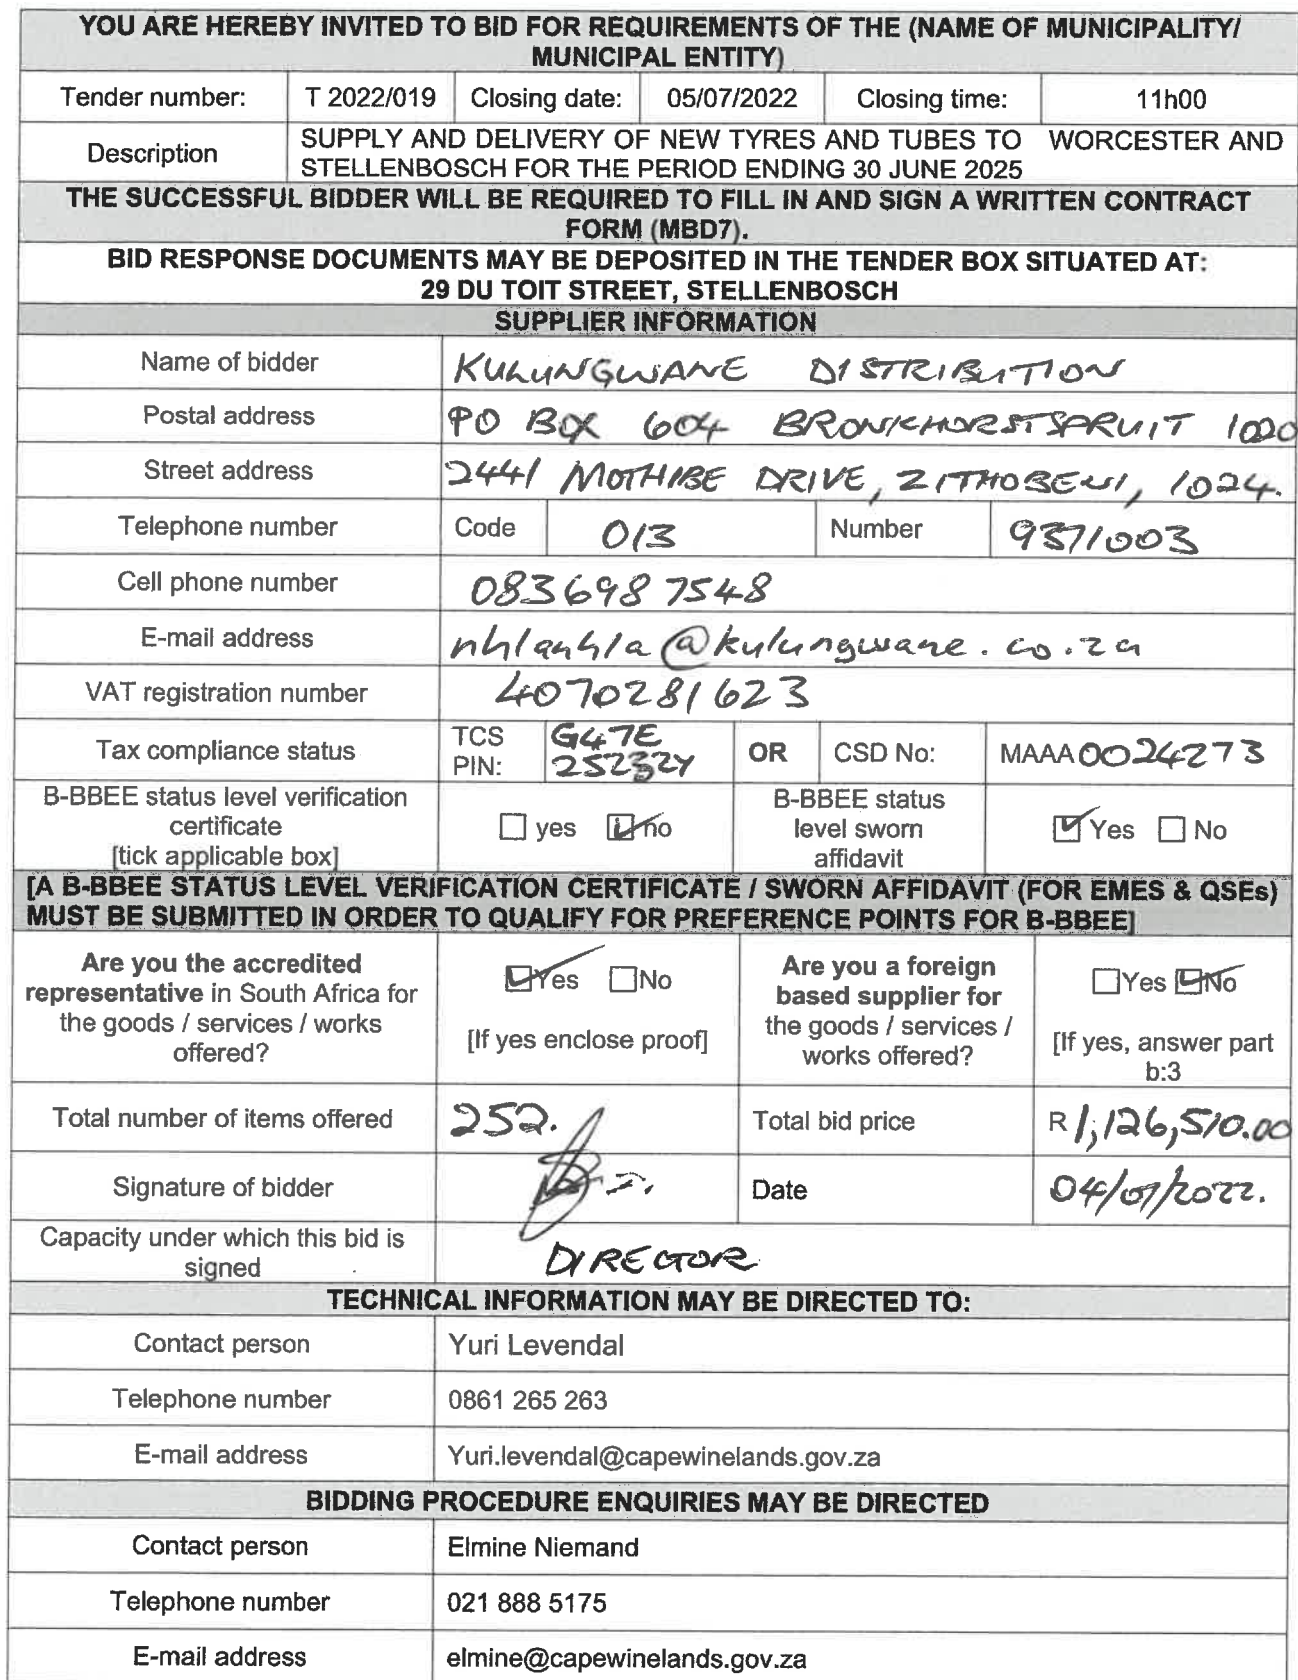 YOU ARE HEREBY INVITED TO BID FOR REQUIREMENTS OF THE (NAME OF MUNICIPALITY/
MUNICIPAL ENTITY)
Tender number: T 2022/019 Closing date: 05/07/2022 Closing time: 11h00
Description SUPPLY AND DELIVERY OF NEW TYRES AND TUBES TO WORCESTER AND
STELLENBOSCH FOR THE PERIOD ENDING 30 JUNE 2025
THE SUCCESSFUL BIDDER WILL BE REQUIRED TO FILL IN AND SIGN A WRITTEN CONTRACT
FORM (MBD7).
BID RESPONSE DOCUMENTS MAY BE DEPOSITED IN THE TENDER BOX SITUATED AT:
29 DU TOIT STREET, STELLENBOSCH
SUPPLIER INFORMATION
Name of bidder KULUNGWANE DISTRIBUTION
Postal address PO BOX 604 BRONKHORSTSPRUIT 1020
Street address 2441 MOTHIBE DRIVE, ZITHOBENI, 1024.
Telephone number Code 013 Number 9371003
Cell phone number 0836987548
E-mail address nhlanhla@kulungwane.co.za
VAT registration number 4070281623
Tax compliance status TCS PIN: G47E 252332Y OR CSD No: MAAA0024273
B-BBEE status level verification
certificate
[tick applicable box]
yes no
B-BBEE status
level sworn
affidavit
Yes No
[A B-BBEE STATUS LEVEL VERIFICATION CERTIFICATE / SWORN AFFIDAVIT (FOR EMES & QSEs)
MUST BE SUBMITTED IN ORDER TO QUALIFY FOR PREFERENCE POINTS FOR B-BBEE]
Are you the accredited
representative in South Africa for
the goods / services / works
offered?
Yes No
[If yes enclose proof]
Are you a foreign
based supplier for
the goods / services /
works offered?
Yes No
[If yes, answer part
b:3
Total number of items offered 252. Total bid price R 1,126,510.00
Signature of bidder Date 04/07/2022.
Capacity under which this bid is
signed
DIRECTOR
TECHNICAL INFORMATION MAY BE DIRECTED TO:
Contact person Yuri Levendal
Telephone number 0861 265 263
E-mail address Yuri.levendal@capewinelands.gov.za
BIDDING PROCEDURE ENQUIRIES MAY BE DIRECTED
Contact person Elmine Niemand
Telephone number 021 888 5175
E-mail address elmine@capewinelands.gov.za